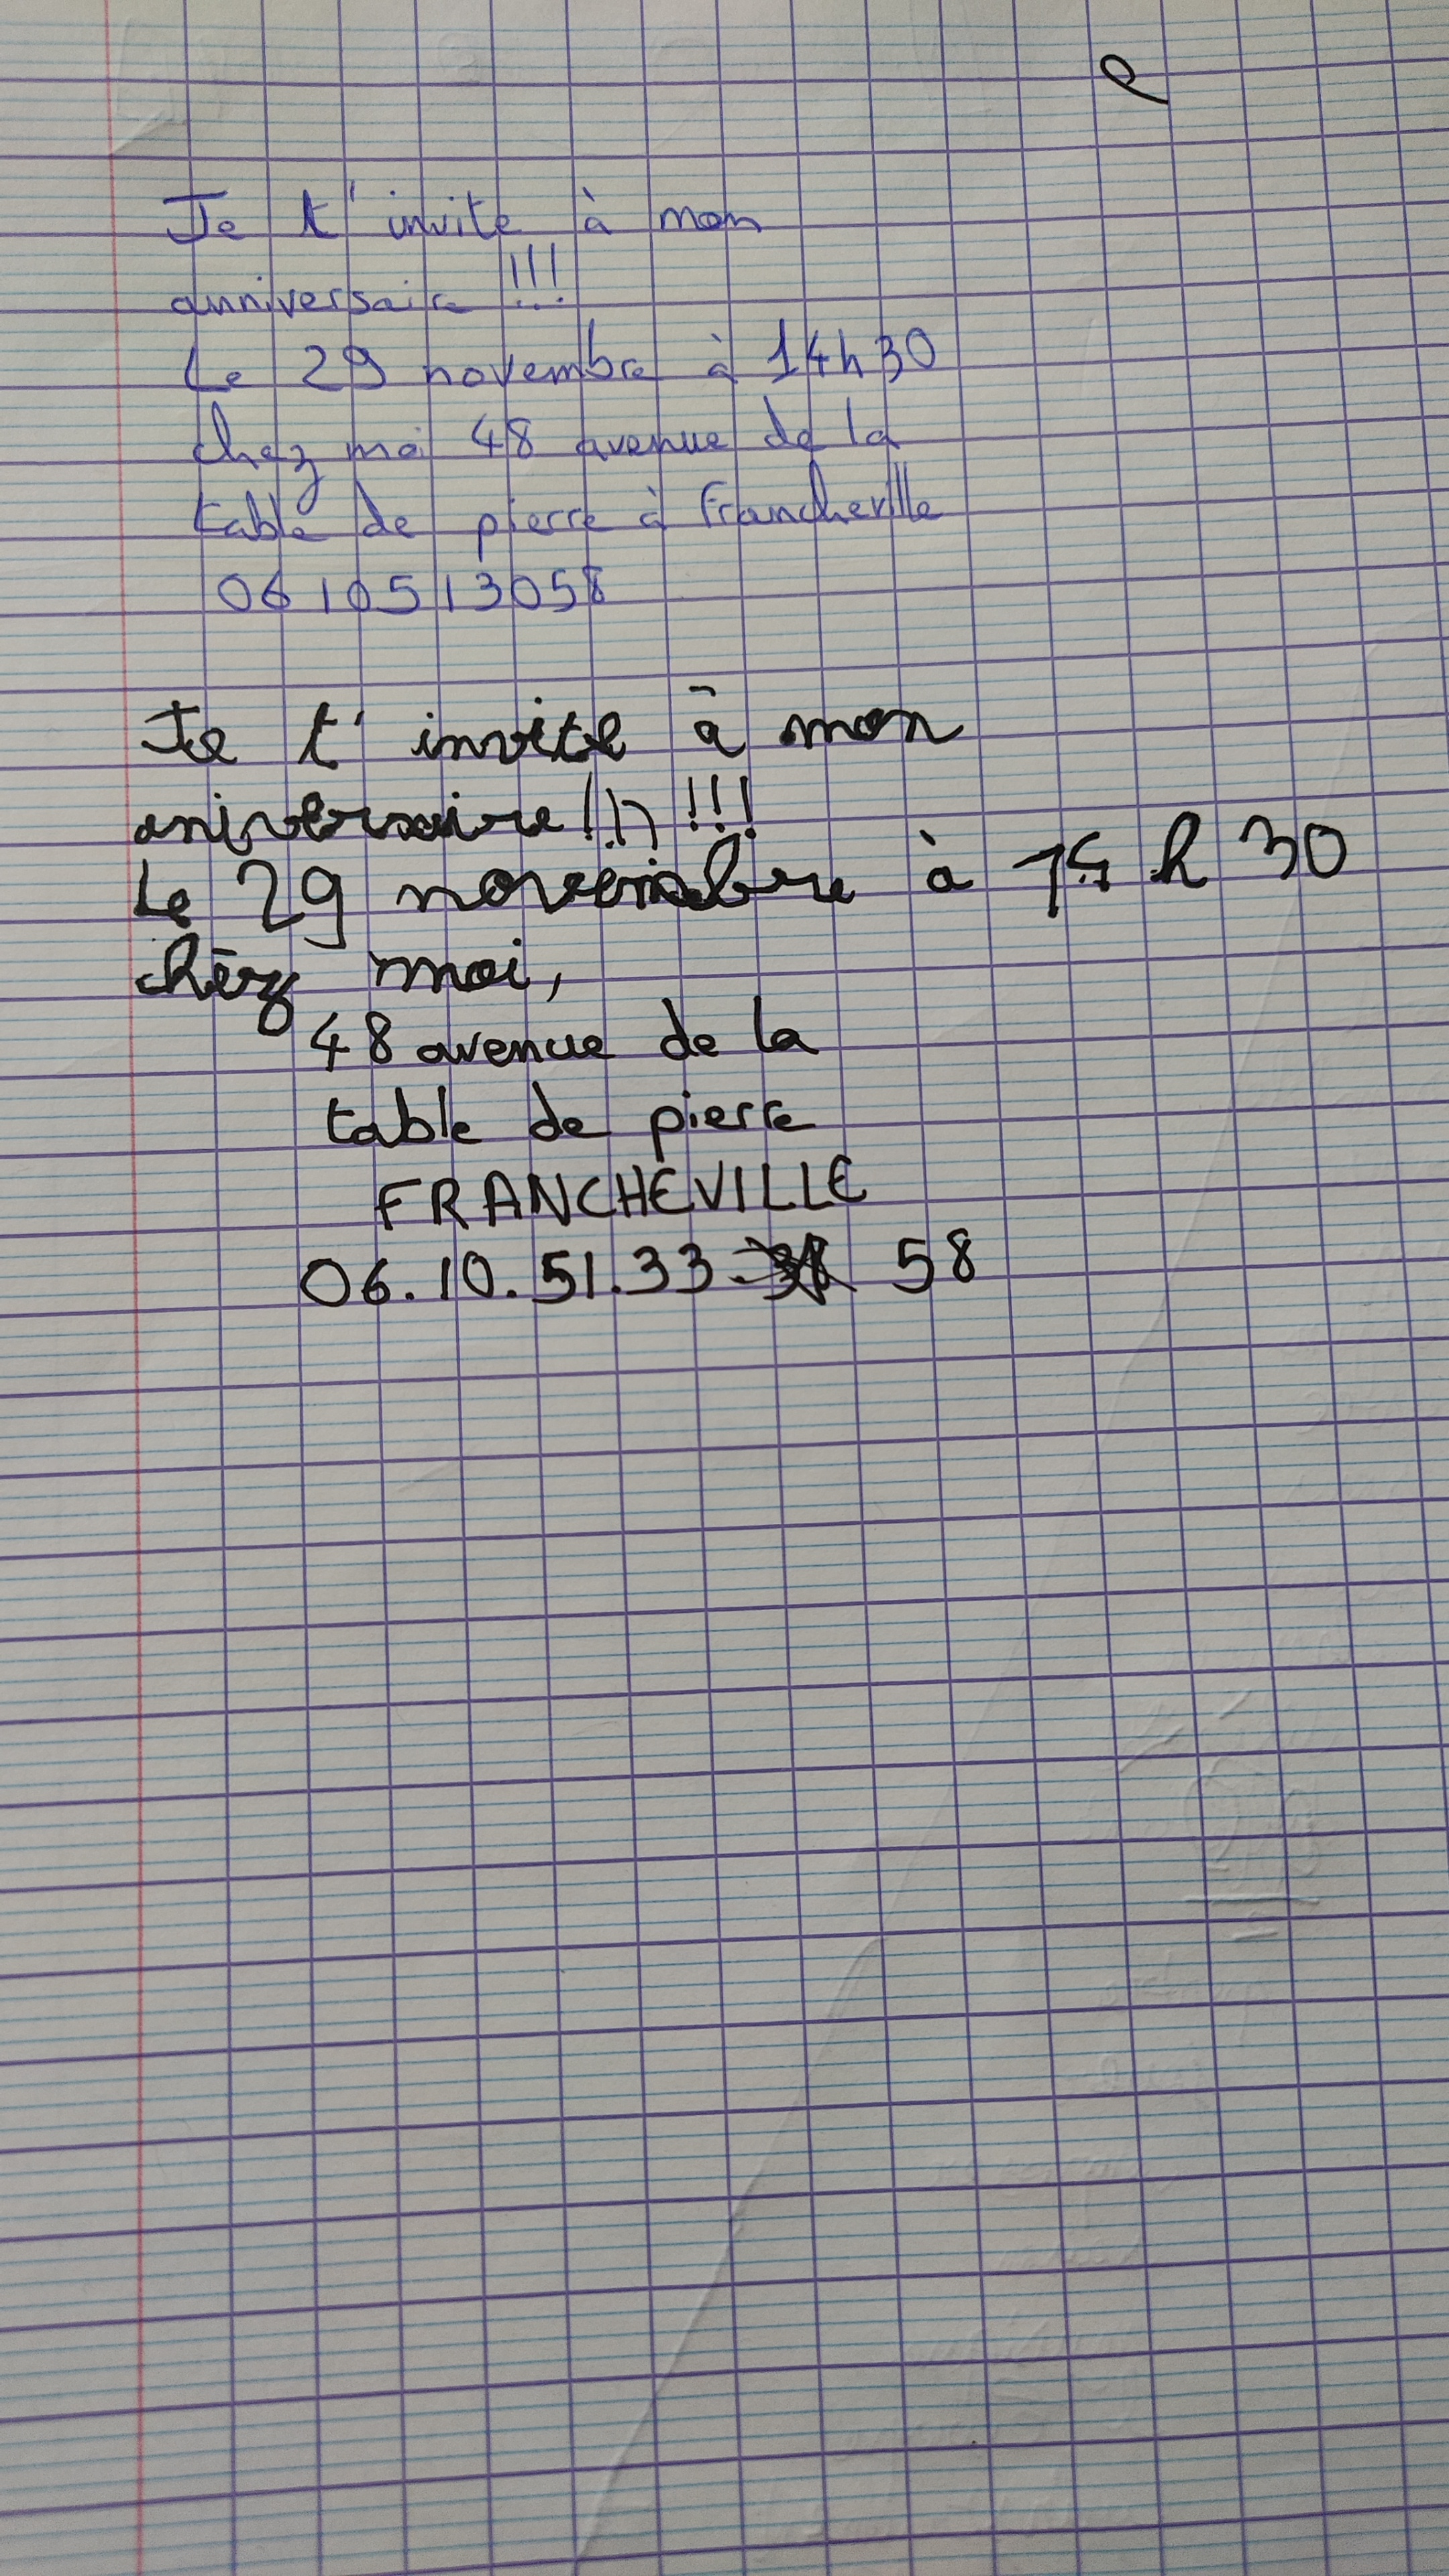 e
Je t'invite à mon
anniversaire !!!
Le 29 novembre à 14h30
chez moi 48 avenue de la
table de pierre à Francheville
0610513058
Je t'invite à mon
aniversaire !!! !!!
Le 29 novembre à 14 h 30
chez moi,
48 avenue de la
table de pierre
FRANCHEVILLE
06.10.51.33. 58